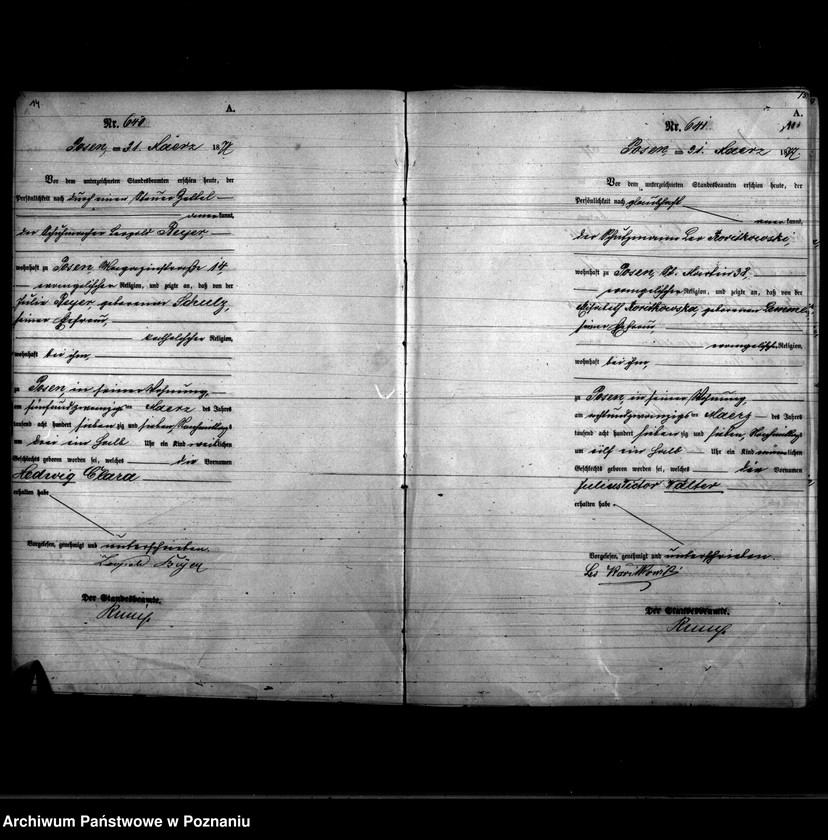 14
A.
Nr. 640
Posen, am 31. Maerz 1877
Vor dem unterzeichneten Standesbeamten erschien heute, der
Persönlichkeit nach durch einen Steuer Zettel
kannt,
der Schuhmacher Leopold Beyer,
wohnhaft zu Posen Magazinstraße 14,
evangelischer Religion, und zeigte an, daß von der
Julie Beyer, geborenen Schulz,
seiner Ehefrau,
katholischer Religion,
wohnhaft bei ihm,
zu Posen, in seiner Wohnung,
am fünfundzwanzigsten Maerz des Jahres
tausend acht hundert siebenzig und sieben Nachmittags
um drei ein halb Uhr ein Kind weiblichen
Geschlechts geboren worden sei, welches die Vornamen
Hedwig Clara
erhalten habe
Vorgelesen, genehmigt und unterschrieben.
Leopold Beyer
Der Standesbeamte.
15
A.
Nr. 641
Posen, am 31. Maerz 1877
Vor dem unterzeichneten Standesbeamten erschien heute, der
Persönlichkeit nach glaubhaft
kannt,
der Schutzmann Leo Koritkowski,
wohnhaft zu Posen St. Martin 32,
evangelischer Religion, und zeigte an, daß von der
Koritkowska, geborenen
seiner Ehefrau
evangelischer Religion,
wohnhaft bei ihm,
zu Posen, in seiner Wohnung,
am achtundzwanzigsten Maerz des Jahres
tausend acht hundert siebenzig und sieben, Nachmittags
um elf ein halb Uhr ein Kind männlichen
Geschlechts geboren worden sei, welches die Vornamen
Julius Victor Walter
erhalten habe.
Vorgelesen, genehmigt und unterschrieben.
Leo Koritkowski
Der Standesbeamte.
Archiwum Państwowe w Poznaniu